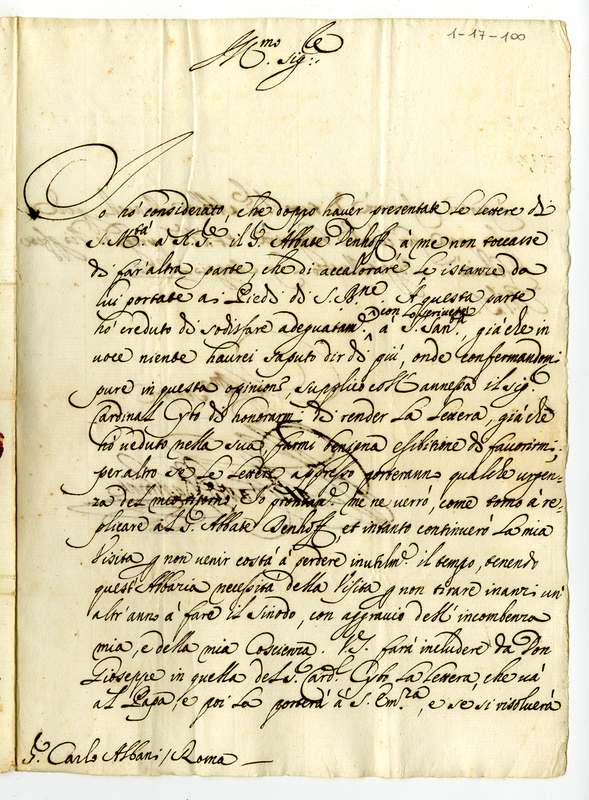 1-17-100
Ill.mo Sig.re
Io hò considerato, che doppo haver presentate le lettere di
S. M.tà a N. S.re il S. Abbate Denhoff à me non toccasse
di far'altra parte, che di accalorare le istanze da
lui portate a i Piedi di S. B.ne. A questa parte
hò creduto di sodisfare adeguatam.te con lo scrivere à S. San.tà, già che in
voce niente haurei saputo dir di più, onde confermandomi
pure in questa opinione, supplico coll'annessa il sig.r
Cardinal Cybo di honorarmi di render la lettera, già che
hò veduto nella sua farmi benigna esibitione di favorirmi,
per altro se le lettere appresso porteranno qualche urgen-
za del mio ritorno Io prontam.te me ne verrò, come torno à re-
plicare al S. Abbate Denhoff, et intanto continuerò la mia
Visita p non venir costà à perdere inutilm.te il tempo, tenendo
quest'Abbazia necessità della Visita p non tirare inanzi un'
altr'anno à fare il sinodo, con aggravio dell'incombenza
mia, e della mia Coscienza. V.S. farà includere da Don
Gioseppe in quella del S. Card.l Cybo la lettera, che và
al Papa, e poi la porterà à S. Em.za, e se si risolverà
S. Carlo Albani / Roma —